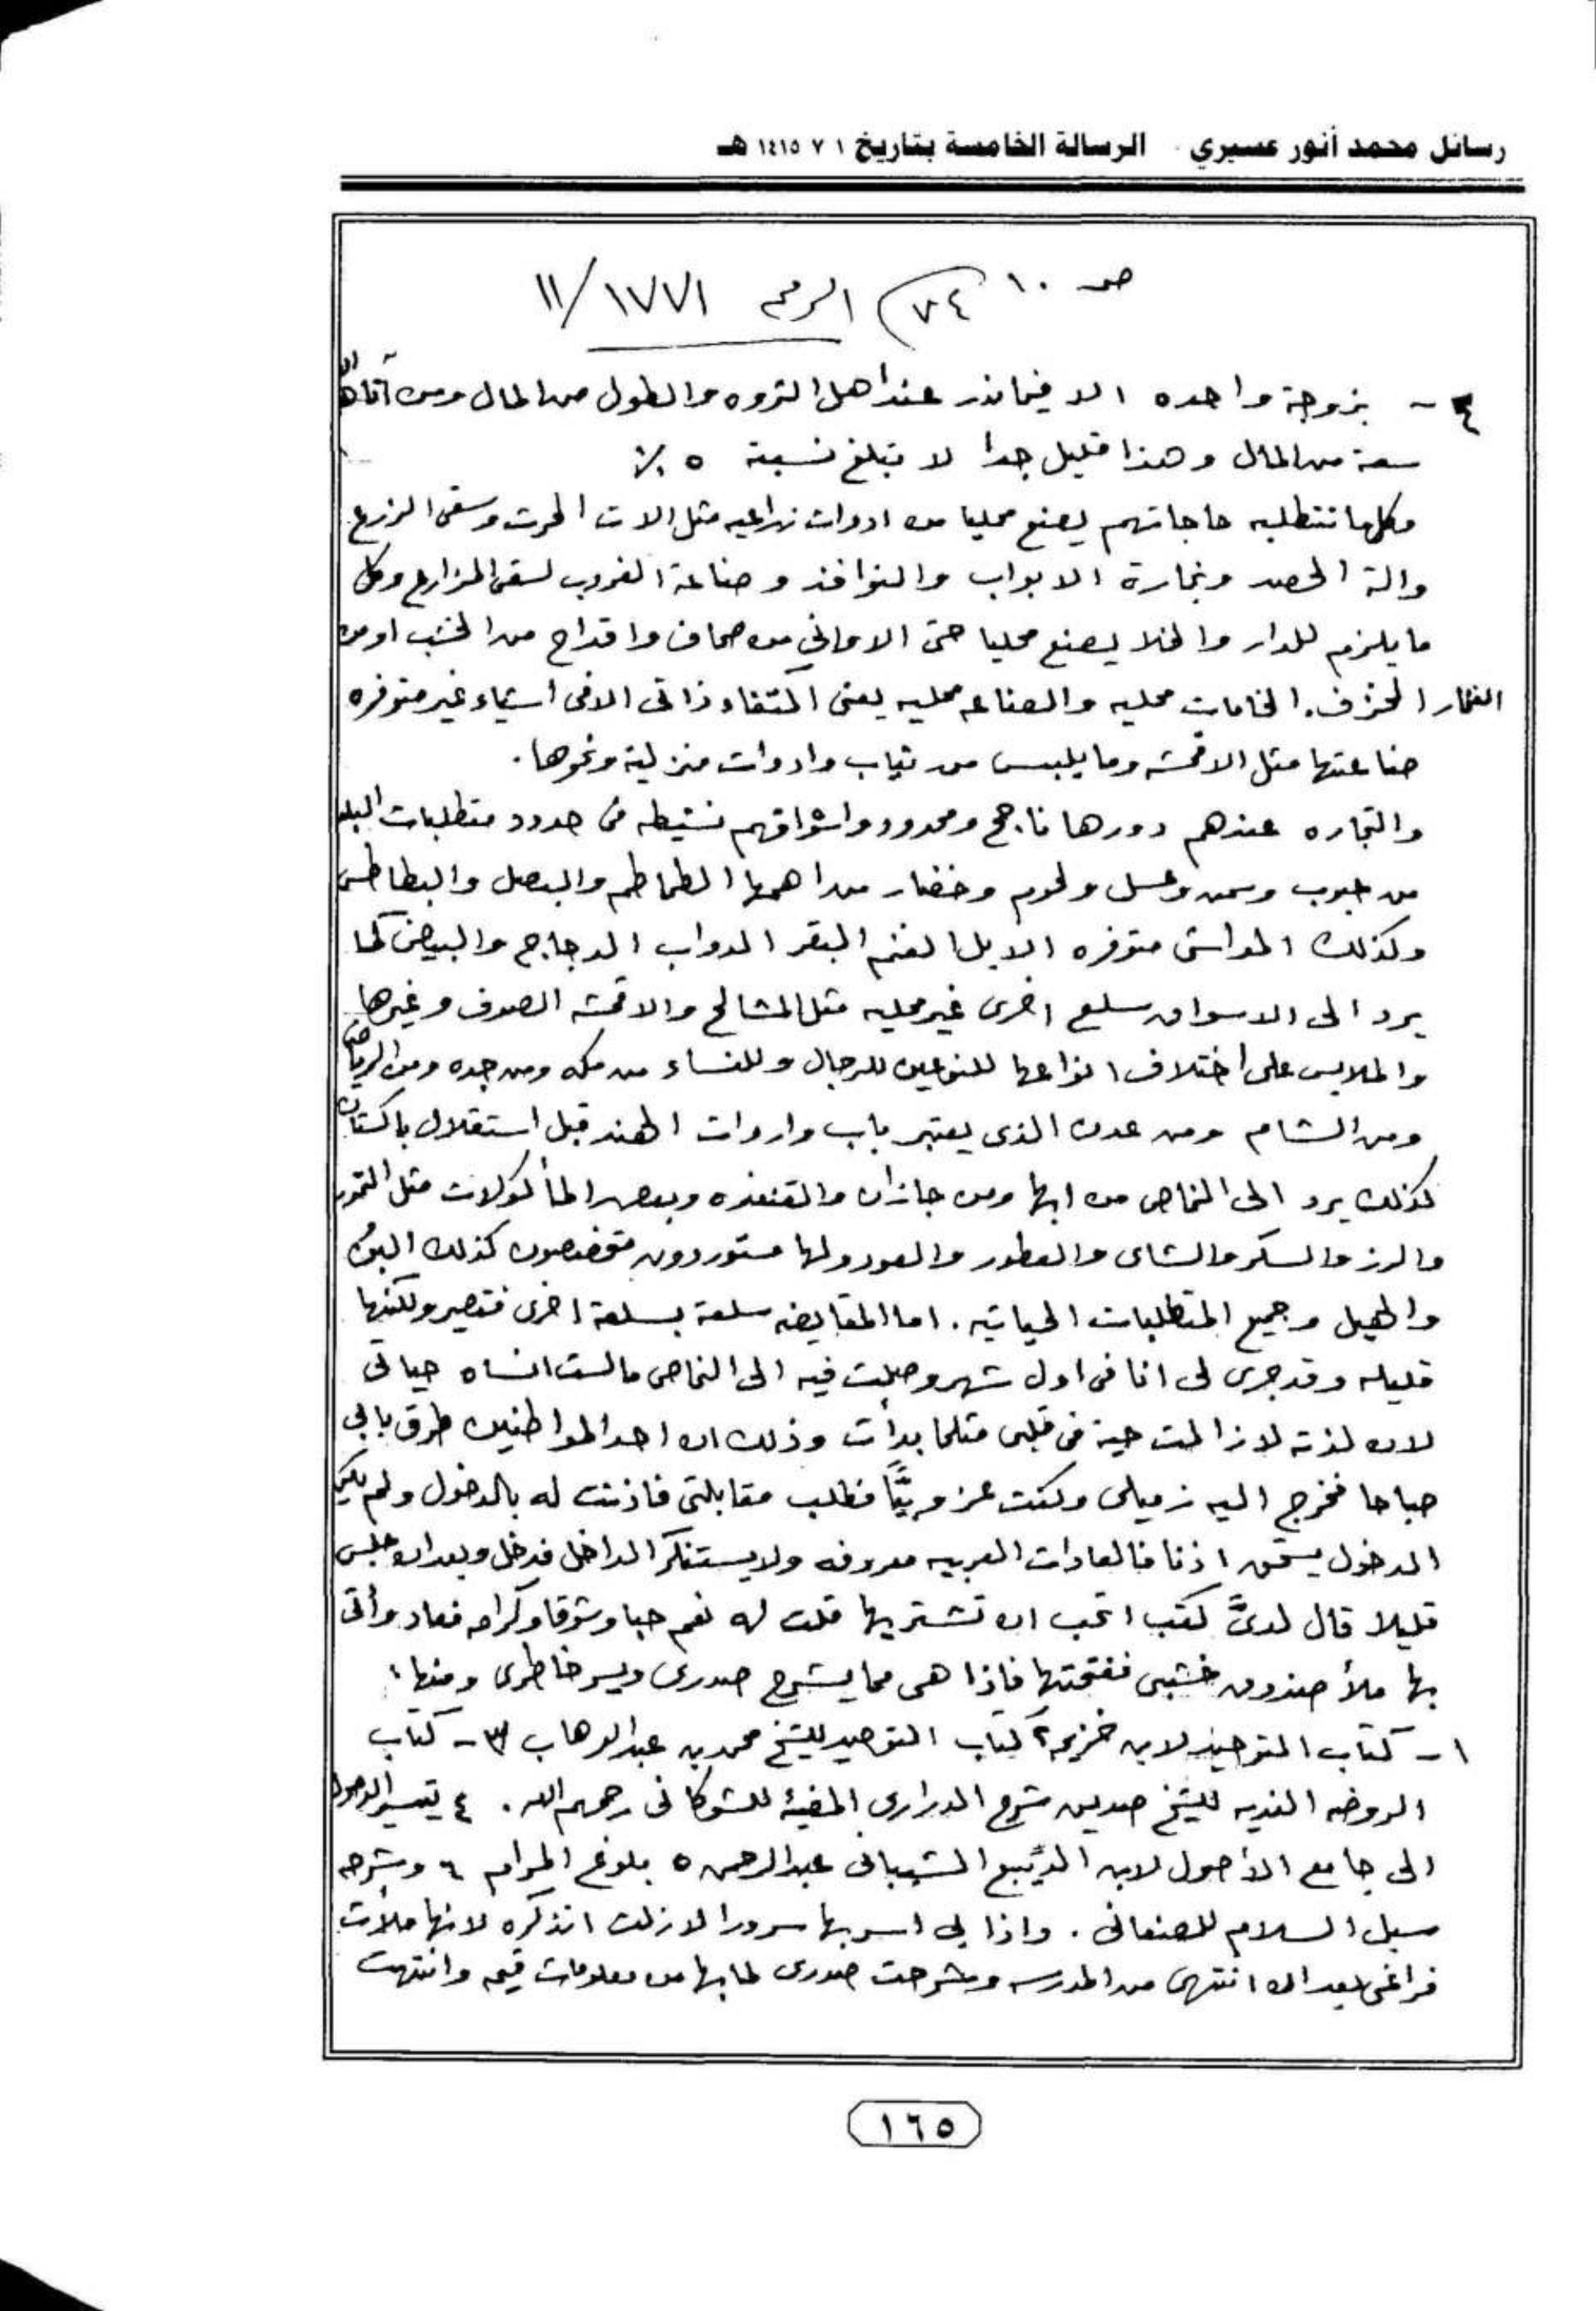 رسائل محمد أنور عسيري الرسالة الخامسة بتاريخ ١ ٧ ١٤١٥ هـ
صـ ١٠ ٧٤ الرقم ١١/١٧٧١
٤ - بزوجة واحده الا فيما ندر عند اهل الثروه والطول من المال ومن آتاه الله
سعة من المال وهذا قليل جدا لا تبلغ نسبة ٥ ٪
وكلما تتطلبه حاجاتهم يصنع محليا من ادوات زراعيه مثل الات الحرث وسقى الزرع
والة الحصد ونجارة الابواب والنوافذ وصناعة الغروب لسقى المزارع وكل
ما يلزم للدار والخلا يصنع محليا حتى الاواني من صحاف واقداح من الخشب او من
الفخار الخزف. الخامات محليه والصناعه محليه يعنى اكتفاء ذاتى الا فى اشياء غير متوفره
صناعتها مثل الاقمشه وما يلبس من ثياب وادوات منزلية ونحوها.
والتجاره عندهم دورها ناجح ومحدود واسواقهم نشيطه فى حدود متطلبات البلد
من حبوب وسمن وعسل ولحوم وخضار من اهمها الطماطم والبصل والبطاطس
وكذلك المواشى متوفره الابل الغنم البقر الدواب الدجاج والبيض كما
يرد الى الاسواق سلع اخرى غير محليه مثل المشالح والاقمشه الصوف وغيرها
والملابس على اختلاف انواعها للنوعين للرجال وللنساء من مكه ومن جده ومن الرياض
ومن الشام ومن عدن الذى يعتبر باب واردات الهند قبل استقلال باكستان
كذلك يرد الى النماص من ابها ومن جازان والقنفذه وبعض المأكولات مثل التمور
والرز والسكر والشاى والعطور والعود ولها مستوردون متخصصون كذلك البن
والهيل وجميع المتطلبات الحياتيه. اما المقايضه سلعة بسلعة اخرى فتصير ولكنها
قليله وقد جرى لى انا فى اول شهر وصلت فيه الى النماص مالست انساه حياتى
لان لذته لازالت حية فى قلبى مثلما بدأت وذلك ان احد المواطنين طرق بابى
صباحا فخرج اليه زميلى وكنت عزوبيًّا فطلب مقابلتى فاذنت له بالدخول ولم يكن
الدخول يستحق اذنا فالعادات العربيه معروفه ولا يستنكر الداخل فدخل وبعد ان جلس
قليلا قال لدىَّ كتب اتحب ان تشتريها قلت له نعم حبا وشوقا وكرامه فعاد وأتى
بها ملأ صندوق خشبى ففتحتها فاذا هى مما يشرح صدرى ويسر خاطرى ومنها:
١ - كتاب التوحيد لابن خزيمه ٢ كتاب التوحيد للشيخ محمد بن عبدالوهاب ٣ - كتاب
الروضه النديه للشيخ صديق شرح الدرارى المضيئه للشوكانى رحمهم الله. ٤ تيسير الوصول
الى جامع الأصول لابن الديبع الشيبانى عبدالرحمن ٥ بلوغ المرام ٦ وشرحه
سبل السلام للصنعانى. واذا بى اسر بها سرورا لازلت اتذكره لانها ملأت
فراغى بعد ان انتهى من المدرسه وشرحت صدرى لما بها من معلومات قيمه وانتهت
١٦٥